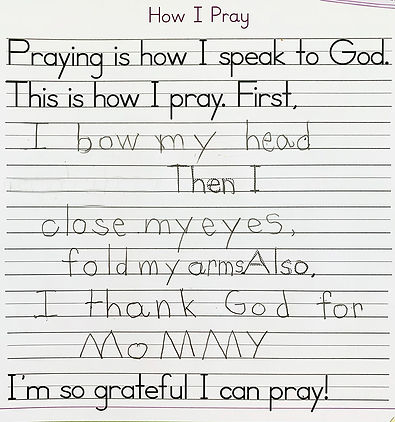 How I Pray
Praying is how I speak to God.
This is how I pray. First,
I bow my head
Then I
close my eyes,
fold my armsAlso,
I thank God for
MoMMY
I'm so grateful I can pray!